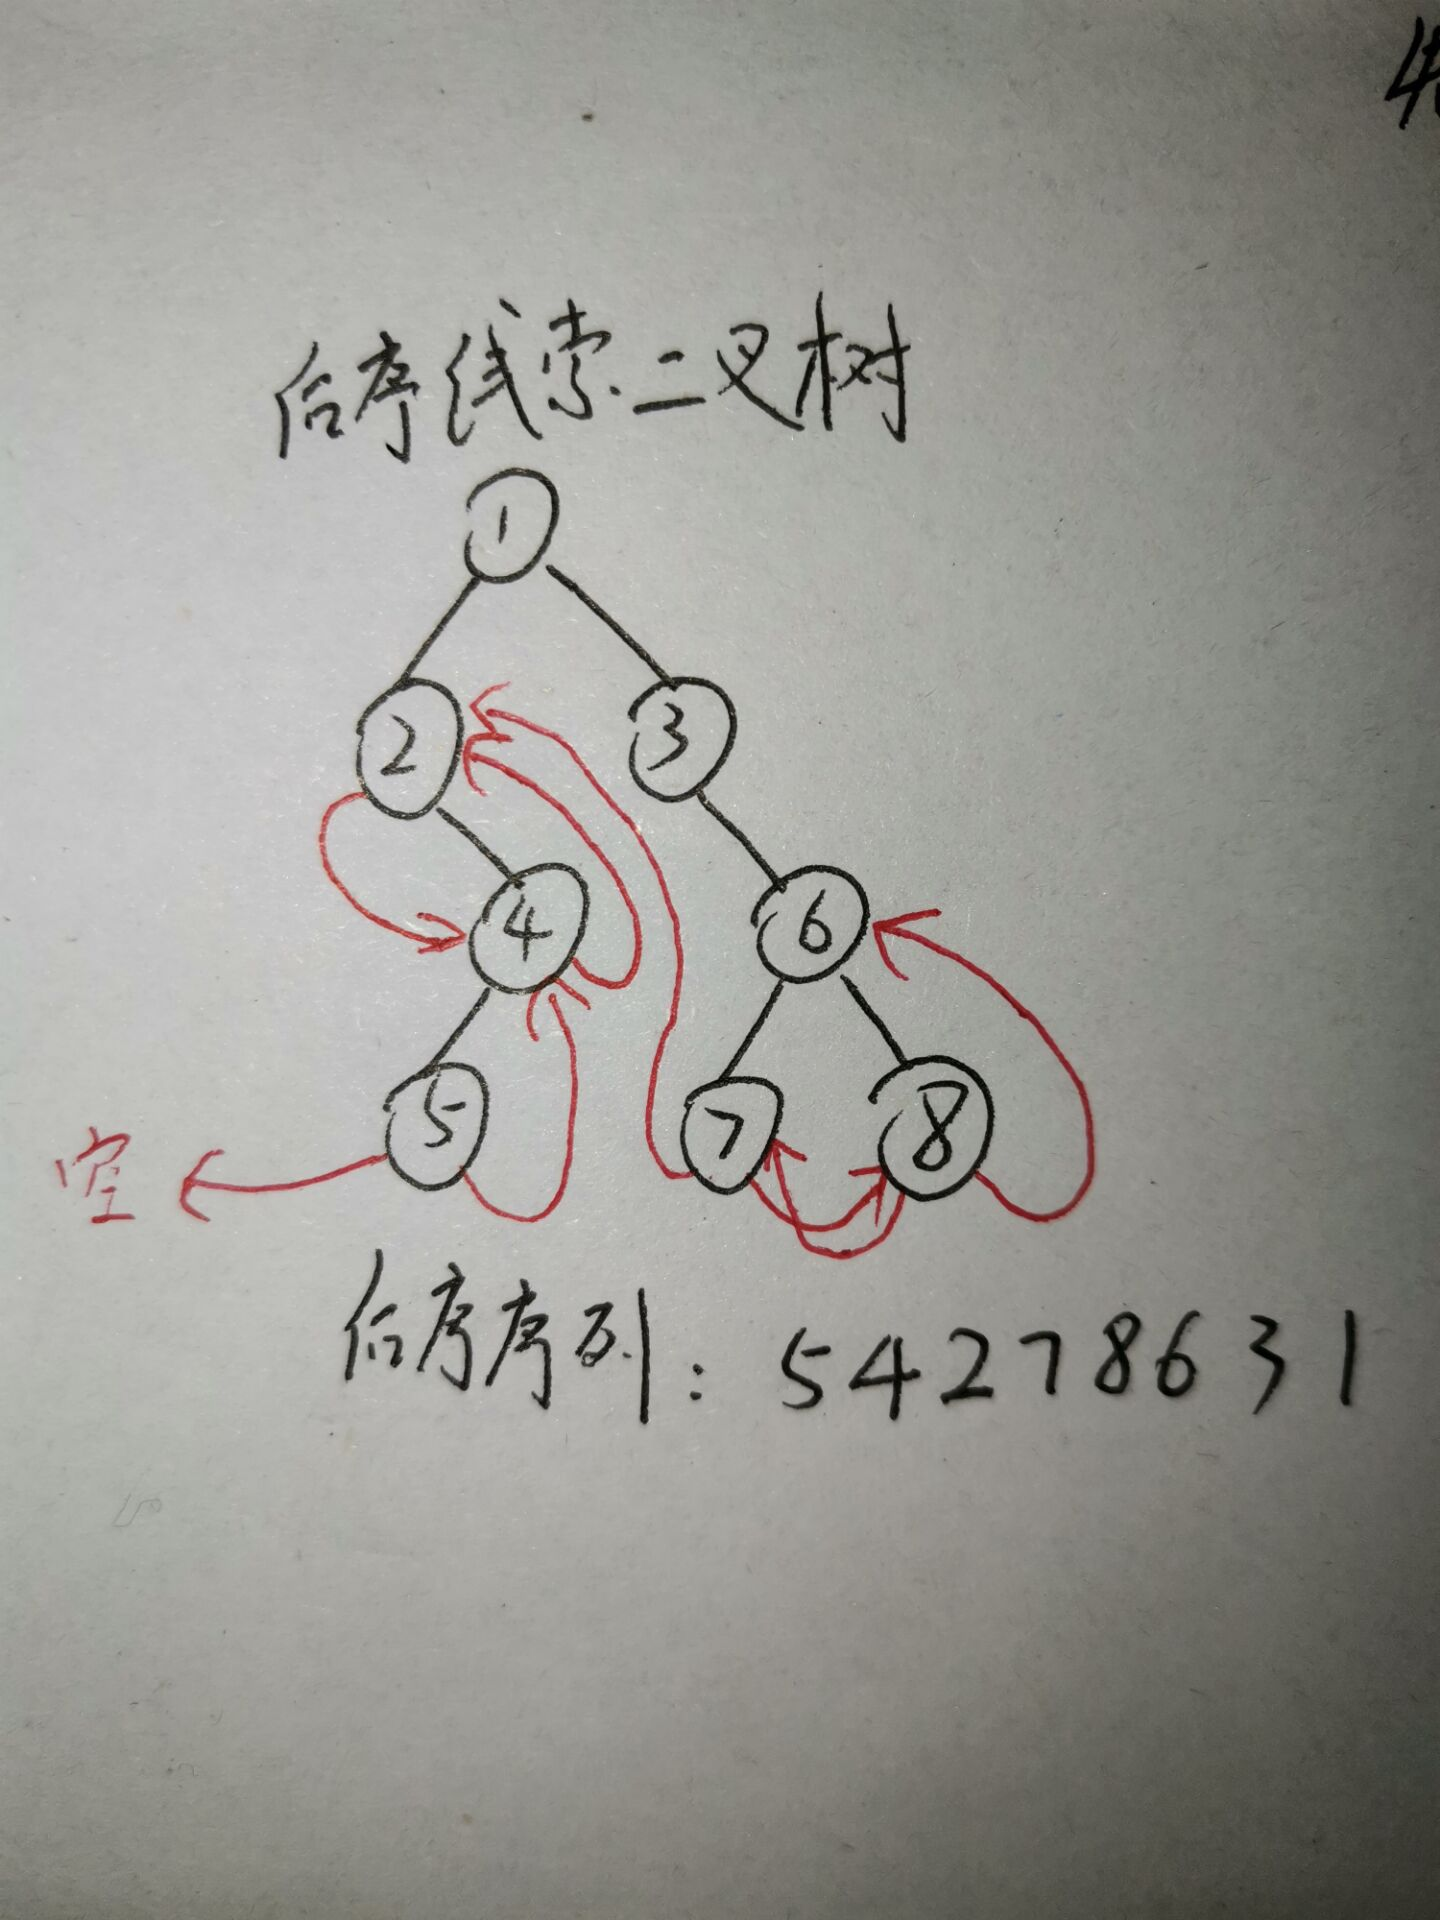 后序线索二叉树
1
2 3
4 6
5 7 8
空
后序序列：54278631